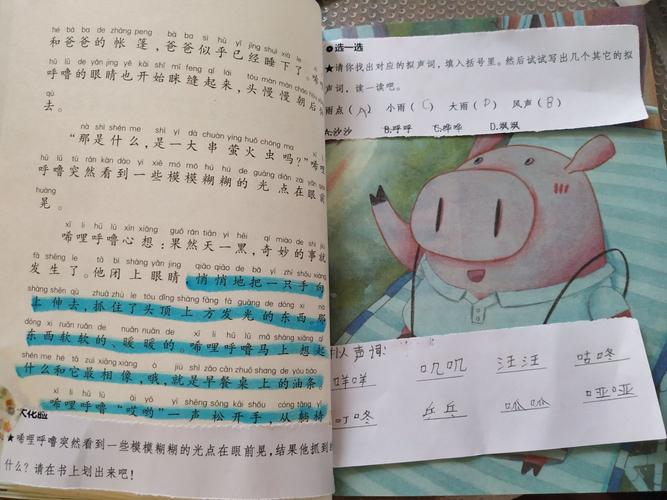 hé bà ba de zhàng peng bà ba sì hū yǐ jīng shuì xià le
和爸爸的帐篷，爸爸似乎已经睡下了。
hū lū de yǎn jīng yě kāi shǐ mī feng qǐ lái tóu màn màn
呼噜的眼睛也开始眯缝起来，头慢慢朝后
qù
去。
nà shì shén me shì yí dà chuàn yíng huǒ chóng ma
“那是什么，是一大串萤火虫吗？”
hū lū tū rán kàn dào yì xiē mó mó hū hū de guāng diǎn zài yǎn qián
呼噜突然看到一些模模糊糊的光点在眼前
huàng
晃。
xī lǐ hū lū xīn xiǎng guǒ rán tiān yì hēi qí miào de shì jiù
唏哩呼噜心想：果然天一黑，奇妙的事就
fā shēng le tā bì shàng yǎn jīng qiāo qiāo de bǎ yì zhī shǒu xiàng
发生了。他闭上眼睛，悄悄地把一只手向
shàng shēn qù zhuā zhù le tóu dǐng shàng fāng fā guāng de dōng xi
上伸去，抓住了头顶上方发光的东西。那
dōng xi ruǎn ruǎn de nuǎn nuǎn de xī lǐ hū lū mǎ shàng xiǎng qǐ
东西软软的、暖暖的。唏哩呼噜马上想起
shén me hé tā zuì xiāng xiàng ò jiù shì zǎo cān zhuō shàng de yóu tiáo
什么和它最相像，哦，就是早餐桌上的油条。
xī lǐ hū lū āi yō yì shēng sōng kāi shǒu cóng tǎng yǐ
唏哩呼噜“哎哟”一声松开手，从躺椅
★唏哩呼噜突然看到一些模模糊糊的光点在眼前晃，结果他抓到的
什么？请在书上划出来吧！
选一选
★请你找出对应的拟声词，填入括号里。然后试试写出几个其它的拟
声词，读一读吧。
雨点（A） 小雨（C） 大雨（D） 风声（B）
A.沙沙 B.呼呼 C.哗哗 D.
拟人声词：
叽叽 汪汪 咕咚
咩咩
叮咚 乒乓 呱呱 哑哑